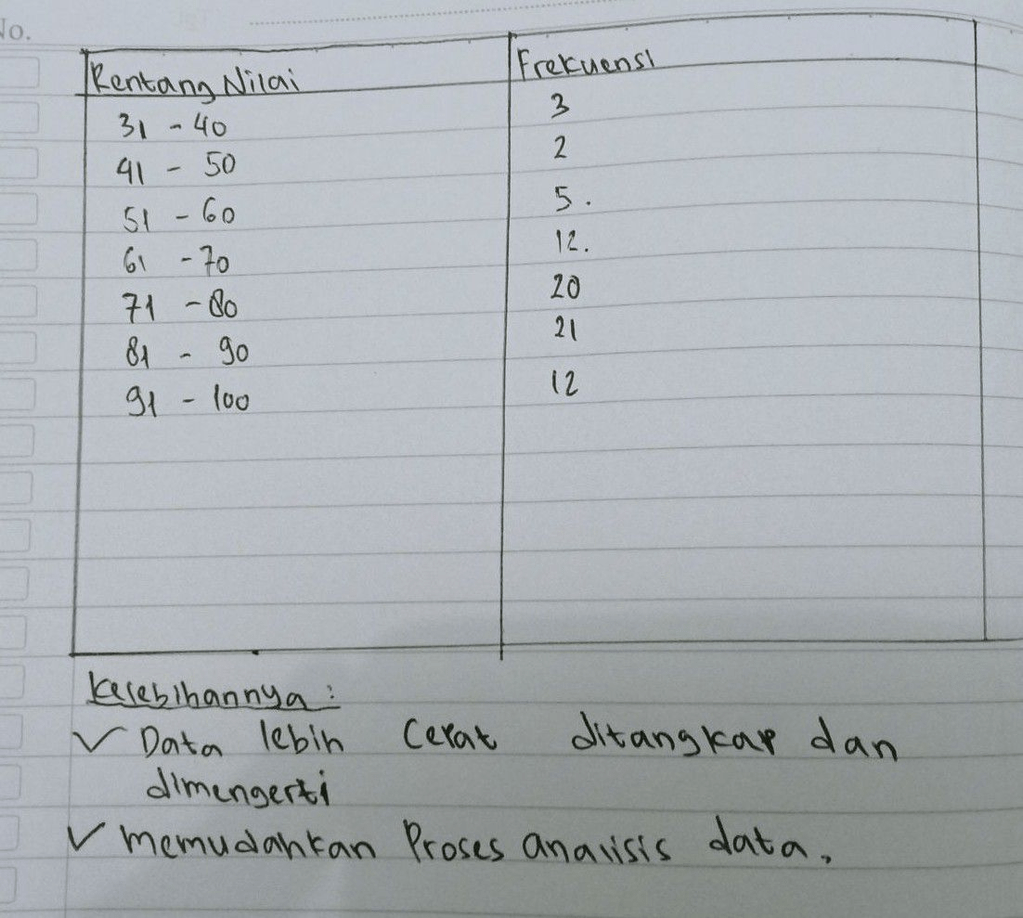 No.
Rentang Nilai Frekuensi
31 - 40 3
41 - 50 2
51 - 60 5.
61 - 70 12.
71 - 80 20
81 - 90 21
91 - 100 12
Kelebihannya :
✓ Data lebih Cepat ditangkap dan
dimengerti
✓ memudahkan Proses analisis data.